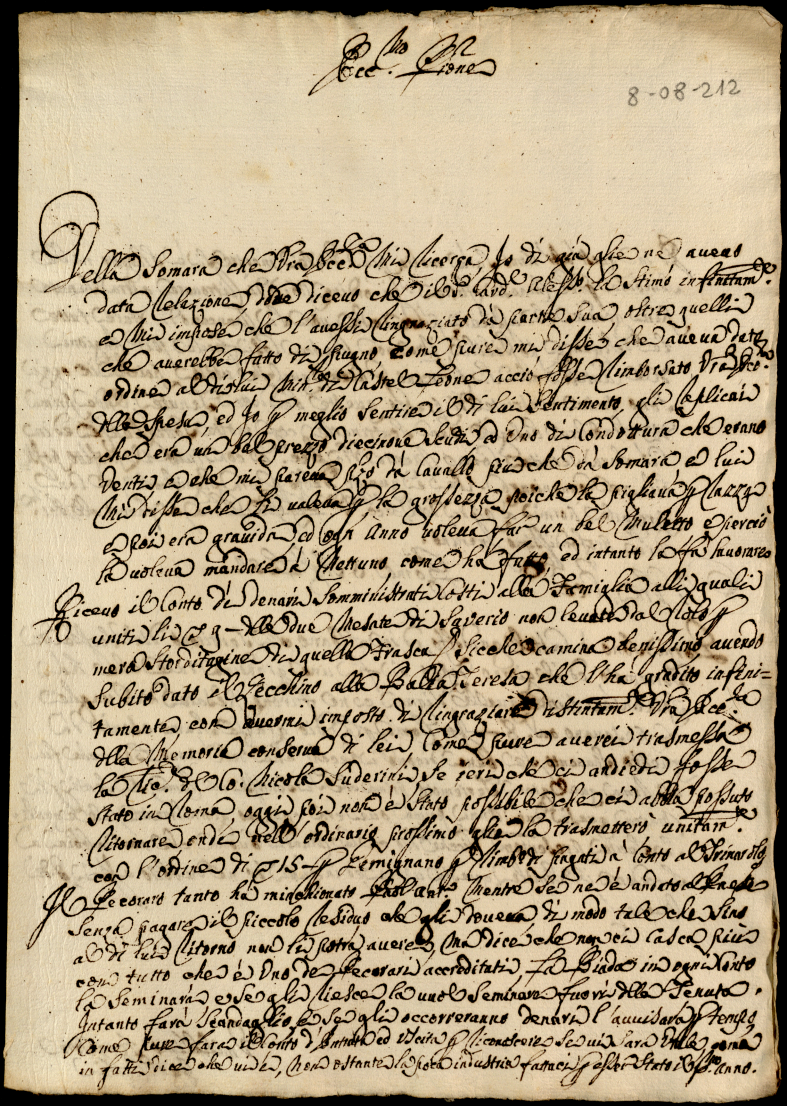 Ecc.mo Prone
8-08-212
Della Somara che Vra Ecc.za mi ricerca Io di già gliene avevo
data relazione, dove dicevo che il Sig. Card. Aless. la stimò infinitam.e
e mi impose che l'avessi ringraziato da parte sua oltre quelli
che averebbe fatto di pugno come pure mi disse, che aveva dato
ordine al di lui Min. di Castel Leone acciò fosse rimborsato Vra Ecc.
della spesa, ed Io p meglio sentire il di lui sentimento, gli replicai
che era un bel prezzo diecinove scudi ed uno di condottura che erano
venti e che mi pareva prezzo da Cavallo più che da Somara e lui
mi disse che li valeva p la grossezza poiche la pigliava p razza
e poi era gravida, ed ogn Anno voleva far un bel Muletto e perciò
la voleva mandare a Nettuno come ha fatto, ed intanto la fà lavorare
Ricevo il Conto di denari somministrati Cotti alla Famiglia alli quali
uniti li 9 delle due Mesate di Saverio non levate dal Rolo p
mera storditagine di quella Frasca, sicche camina benissimo avendo
subito dato il Zecchino alla Balia Teresa che l'hà gradito infini=
tamente, con avermi imposto di ringraziare distintam.e Vra Ecc.za
della Memoria conserva di lei, Come pure averei trasmessa
la di Co: Nicola Suderini se ieri che ci andiedi fosse
stato in Roma, oggi poi non è stato possibile che ci abbia possuto
ritornare onde nell'ordinario prossimo glie la trasmetterò unitam.e
con l'ordine di 15 p Zemignano p rimbo di pagati à Conto al
Il Pecoraro tanto ha minchionato mentre se ne è andato al Paese
senza pagare il piccolo residuo che gli doveva di modo tale che sino
al di lui ritorno non li potrà avere, ma dice che non ci casca più
con tutto che è uno de Pecorari accreditati. La Biada in ogni Conto
la Seminarà e se gli riesce la vuol seminare fuori della Tenuta.
Intanto farà scandaglio, e se gli occorreranno denari l'avvisarà p tempo
Come pure farà il Conto d'Entrata ed Uscita p riconoscere se vi sarà utile come
in fatti dice che vi è, non ostante la poca industria fattaci p esser stato il p.mo anno.